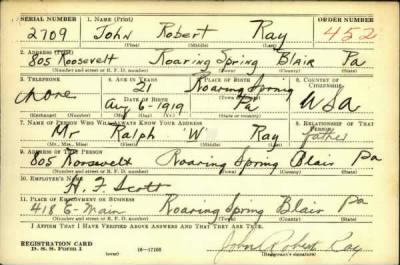 SERIAL NUMBER 1. NAME (Print) ORDER NUMBER
2709 John Robert Ray 452
(First) (Middle) (Last)
2. ADDRESS (Print)
805 Roosevelt Roaring Spring Blair Pa
(Number and street or R. F. D. number) (Town) (County) (State)
3. TELEPHONE 4. AGE IN YEARS 5. PLACE OF BIRTH 6. COUNTRY OF CITIZENSHIP
None 21 Roaring Spring
DATE OF BIRTH (Town or county)
Aug 6-1919 Pa USA
(Exchange) (Number) (Mo.) (Day) (Yr.) (State or country)
7. NAME OF PERSON WHO WILL ALWAYS KNOW YOUR ADDRESS 8. RELATIONSHIP OF THAT PERSON
Mr Ralph "W" Ray father
(Mr., Mrs., Miss) (First) (Middle) (Last)
9. ADDRESS OF THAT PERSON
805 Roosevelt Roaring Spring Blair Pa
(Number and street or R. F. D. number) (Town) (County) (State)
10. EMPLOYER'S NAME
H. F. Scott
11. PLACE OF EMPLOYMENT OR BUSINESS
418 E-Main Roaring Spring Blair Pa
(Number and street or R. F. D. number) (Town) (County) (State)
I AFFIRM THAT I HAVE VERIFIED ABOVE ANSWERS AND THAT THEY ARE TRUE.
REGISTRATION CARD
D. S. S. FORM 1 (over) 16-17105 John Robert Ray
(Registrant's signature)